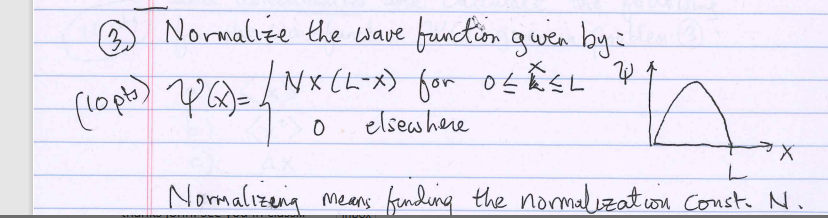 ③ Normalize the wave function given by:
(10 pts) Ψ(x) = { Nx(L-x) for 0 ≤ x ≤ L
0 elsewhere
Ψ
x
L
Normalizing means finding the normalization const. N.